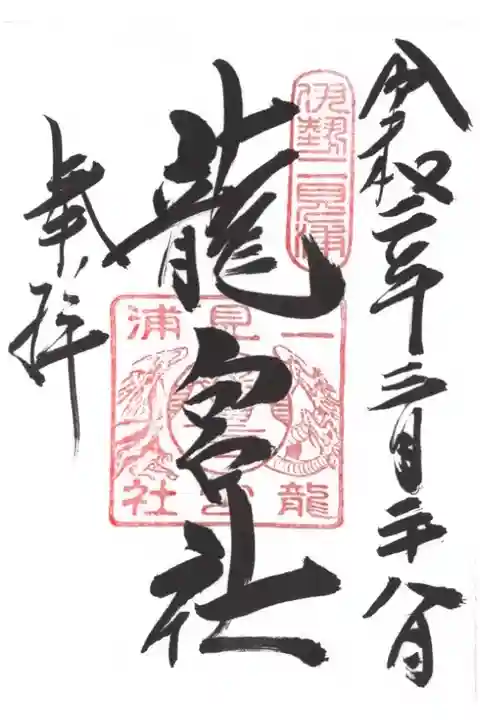 令和二年三月二十八日
伊勢二見浦
龍宮社
二見浦
龍宮社
奉拝